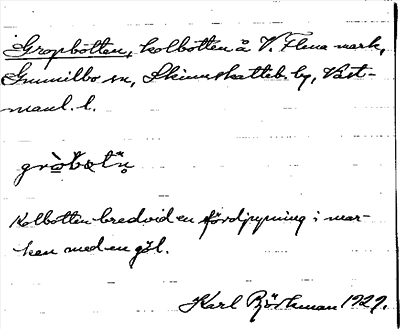 Gropbotten, kolbotten å V. Flena mark,
Gunnilbo sn, Skinnskatteb. hd, Väst-
manl. l.
Kolbotten bredvid en fördjupning i mar-
ken med en göl.
Karl Björkman 1929.